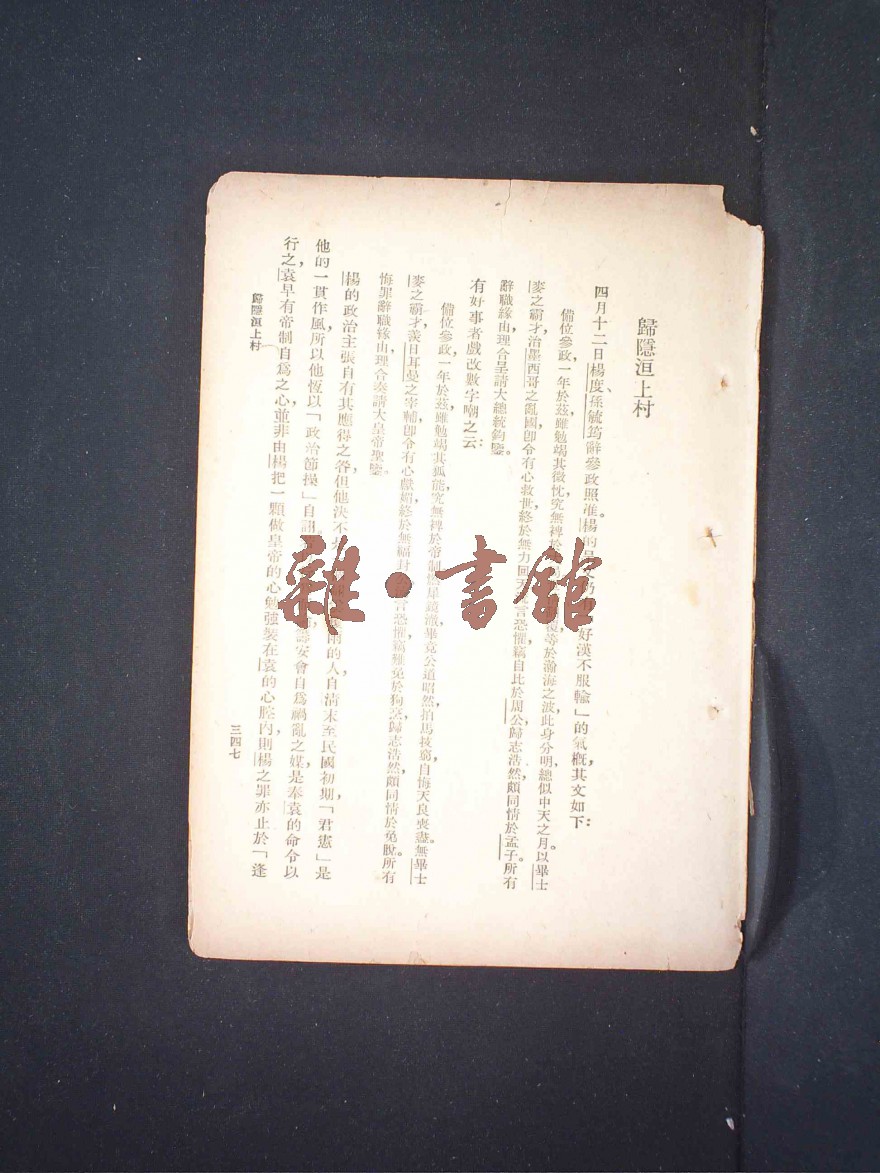 歸隱洹上村
四月十二日楊度、孫毓筠辭參政照准。楊的 好漢不服輸」的氣概，其文如下：
備位參政，一年於茲，雖勉竭其微忱，究無裨於 等於瀚海之波，此身分明，總似中天之月。以畢士
麥之霸才，治墨西哥之亂國，卽令有心救世，終於無力回天。 言恐懼，竊自比於周公，歸志浩然，頗同情於孟子。所有
辭職緣由，理合呈請大總統鈞鑒。
有好事者戲改數字嘲之云：
備位參政，一年於茲，雖勉竭其狐能，究無裨於帝制。 畢竟公道昭然，拍馬技窮，自悔天良喪盡。無畢士
麥之霸才，羨日耳曼之宰輔，卽令有心獻媚，終於無福封 言恐懼，竊難免於狗烹，歸志浩然，頗同情於兔脫。所有
悔罪辭職緣由，理合奏請大皇帝聖鑒。
楊的政治主張自有其應得之咎，但他決不 的人，自清末至民國初期，「君憲」是
他的一貫作風，所以他恆以「政治節操」自詡。 安會自爲禍亂之媒，是奉袁的命令以
行之，袁早有帝制自爲之心，並非由楊把一顆做皇帝的心勉強裝在袁的心腔內，則楊之罪亦止於「逢
歸隱洹上村
三四七
雜·書館